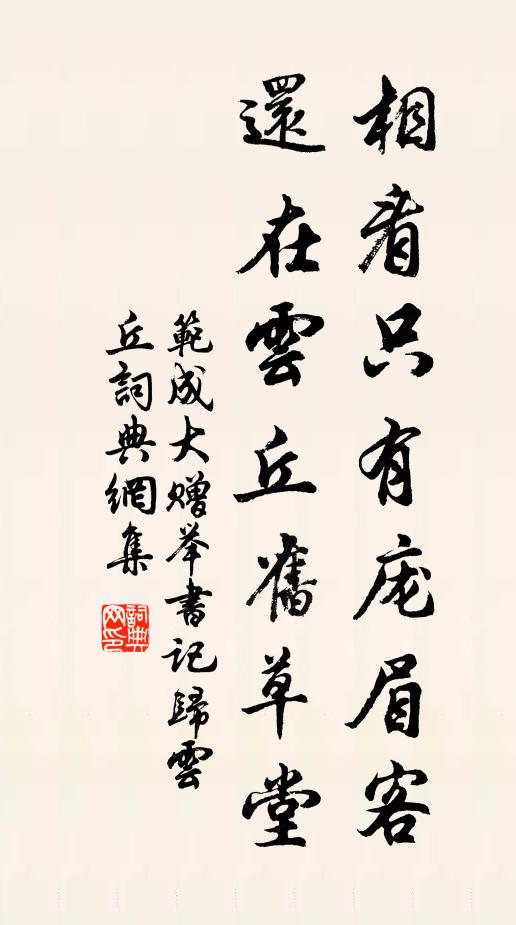 相看只有庞眉客
還在雲丘舊草堂
範成大贈举書記歸雲
丘詞典網集
詞典网印